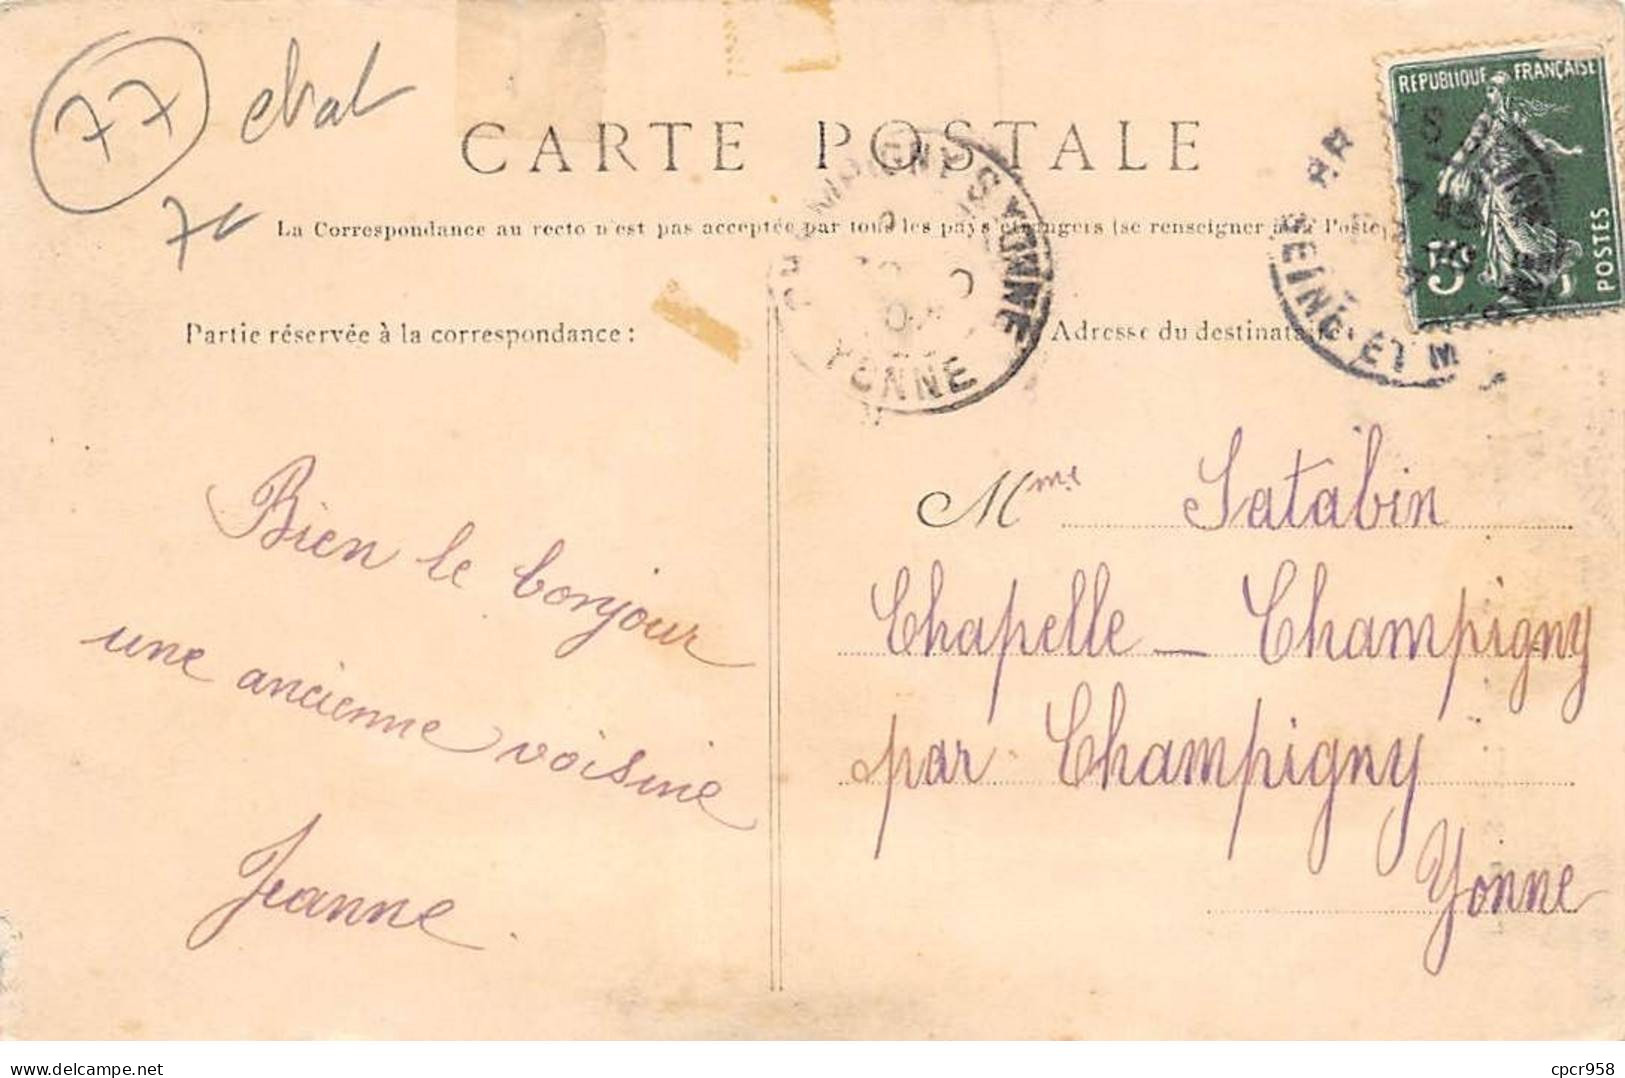 77
CARTE POSTALE
La Correspondance au recto n'est pas acceptée par tous les pays étrangers (se renseigner à la Poste
Partie réservée à la correspondance :
Bien le bonjour
une ancienne voisine
Jeanne.
CHAMPIGNY S YONNE
YONNE
Adresse du destinataire.
Mme Satabin
Chapelle - Champigny
par Champigny
Yonne
REPUBLIQUE FRANÇAISE
POSTES
5
SEINE-ET-M
delcampe.net
cpcr958